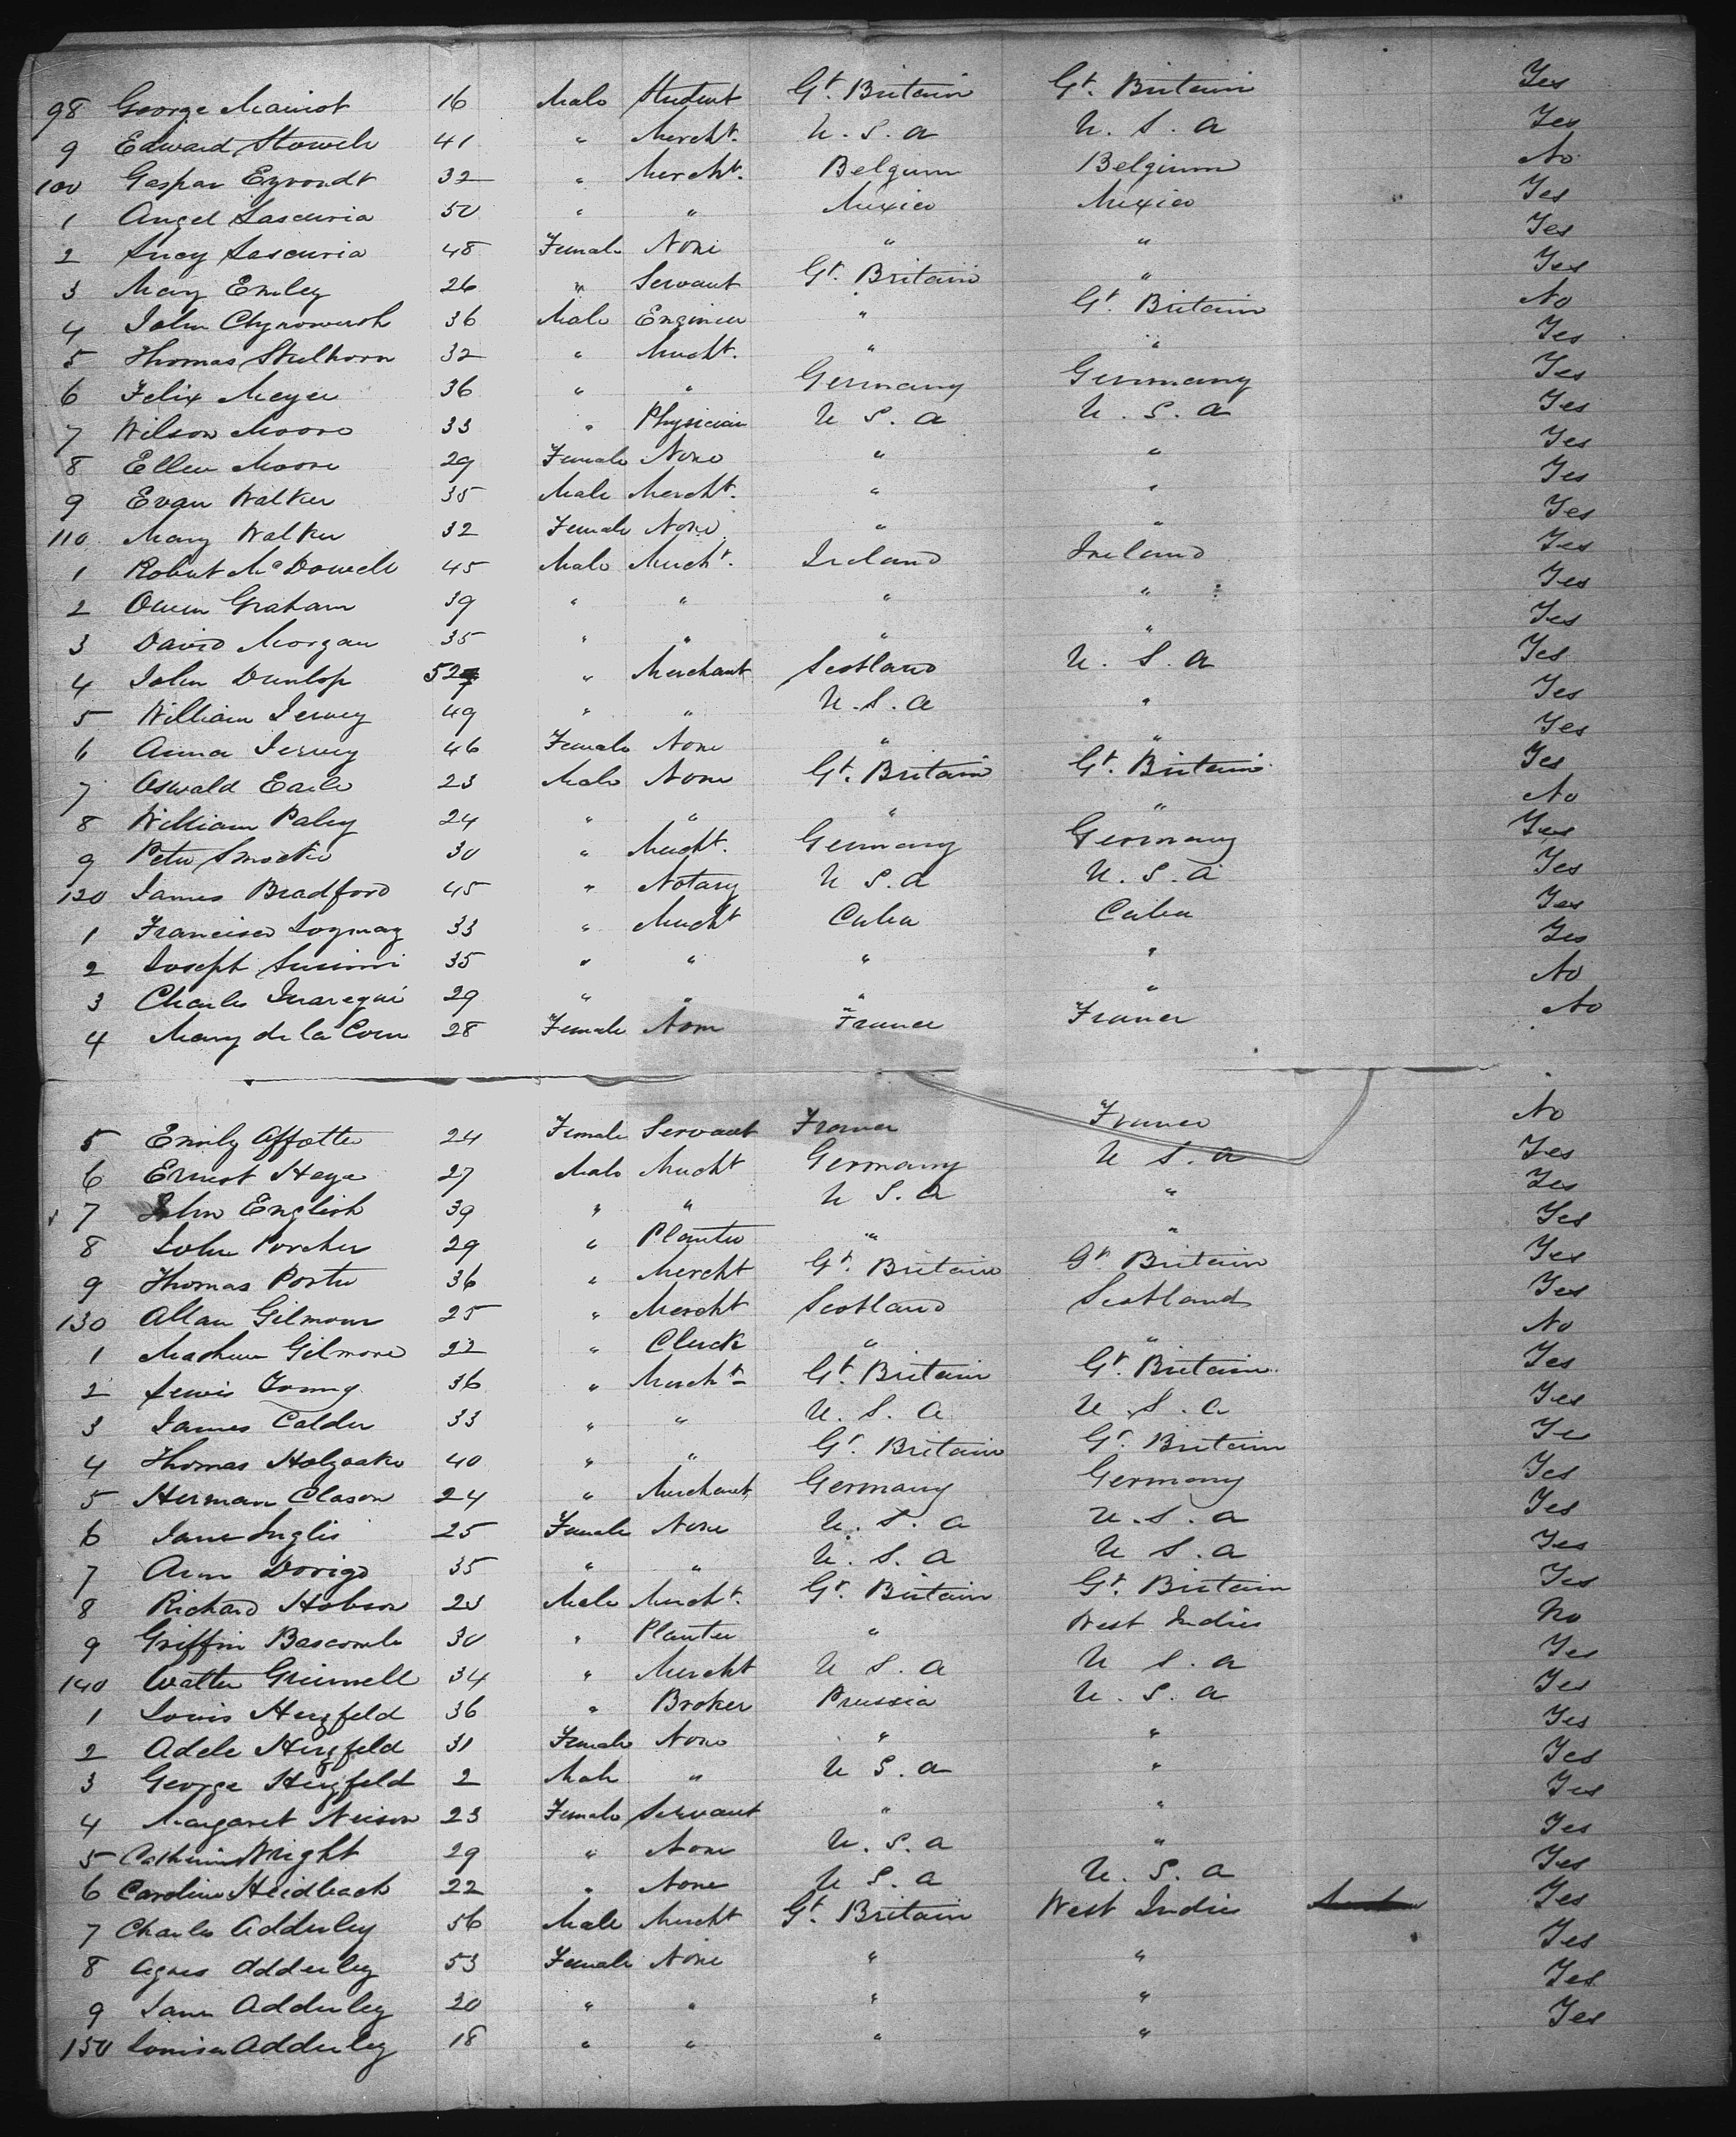 98 George Mainot 16 Male Student Gt. Britain Gt. Britain Yes
9 Edward Stowell 41 " Mercht. U. S. A U. S. A Yes
100 Gaspar 32 " Mercht. Belgium Belgium No
1 Angel Lascuria 50 " " Mexico Mexico Yes
2 Lucy Lascuria 48 Female None " " Yes
3 Mary Emiley 26 " Servant Gt. Britain " Yes
4 John 36 Male Engineer " Gt. Britain No
5 Thomas 32 " Mercht. " " Yes
6 Felix Meyer 36 " " Germany Germany Yes
7 Wilson Moore 33 " Physician U S. A U. S. A Yes
8 Ellen Moore 29 Female None " " Yes
9 Evan Walker 35 Male Mercht. " " Yes
110 Mary Walker 32 Female None " " Yes
1 Robert McDowell 45 Male Mercht. Ireland Ireland Yes
2 Owen Graham 39 " " " " Yes
3 David Morgan 35 " " " " Yes
4 John Dunlop 52 " Merchant Scotland U. S. A Yes
5 William Jervey 49 " " U. S. A " Yes
6 Anna Jervey 46 Female None " " Yes
7 Oswald Earle 23 Male None Gt. Britain Gt. Britain Yes
8 William Paley 24 " " " " No
9 Peter 30 " Mercht. Germany Germany Yes
120 James Bradford 45 " Notary U S. A U. S. A Yes
1 Francisco 33 " Mercht Cuba Cuba Yes
2 Joseph 35 " " " " Yes
3 Charles 29 " " " " No
4 Mary de la 28 Female None France France No
5 Emily 24 Female Servant France France No
6 Ernest Heye 27 Male Mercht Germany U S. A Yes
7 John English 39 " " U S. A " Yes
8 John Porcher 29 " Planter " " Yes
9 Thomas Porter 36 " Mercht Gt. Britain Gt Britain Yes
130 Allan Gilmour 25 " Mercht Scotland Scotland Yes
1 Mathew Gilmore 22 " Clerck " " No
2 Lewis Young 36 " Mercht Gt. Britain Gt. Britain Yes
3 James Calder 33 " " U. S. A U. S. A Yes
4 Thomas Holyoake 40 " " Gt. Britain Gt. Britain Yes
5 Herman Clason 24 " Merchant Germany Germany Yes
6 Jane Inglis 25 Female None U. S. A U. S. A Yes
7 Ann Dorigo 35 " " U. S. A U S. A Yes
8 Richard Hobson 23 Male Mercht. Gt. Britain Gt. Britain Yes
9 Griffin Bascomb 30 " Planter " West Indies No
140 Walter Grinnell 34 " Mercht U S. A U S. A Yes
1 Louis Herzfeld 36 " Broker Prussia U. S. A Yes
2 Adele Herzfeld 31 Female None " " Yes
3 George Herzfeld 2 Male " U S. A " Yes
4 Margaret Neison 23 Female Servant " " Yes
5 Catherine Wright 29 " None U. S. A " Yes
6 Caroline Heidbach 22 " None U S. A U. S. A Yes
7 Charles Adderley 56 Male Mercht Gt. Britain West Indies Yes
8 Agnes Adderley 53 Female None " " Yes
9 Jane Adderley 20 " " " " Yes
150 Louisa Adderley 18 " " " " Yes